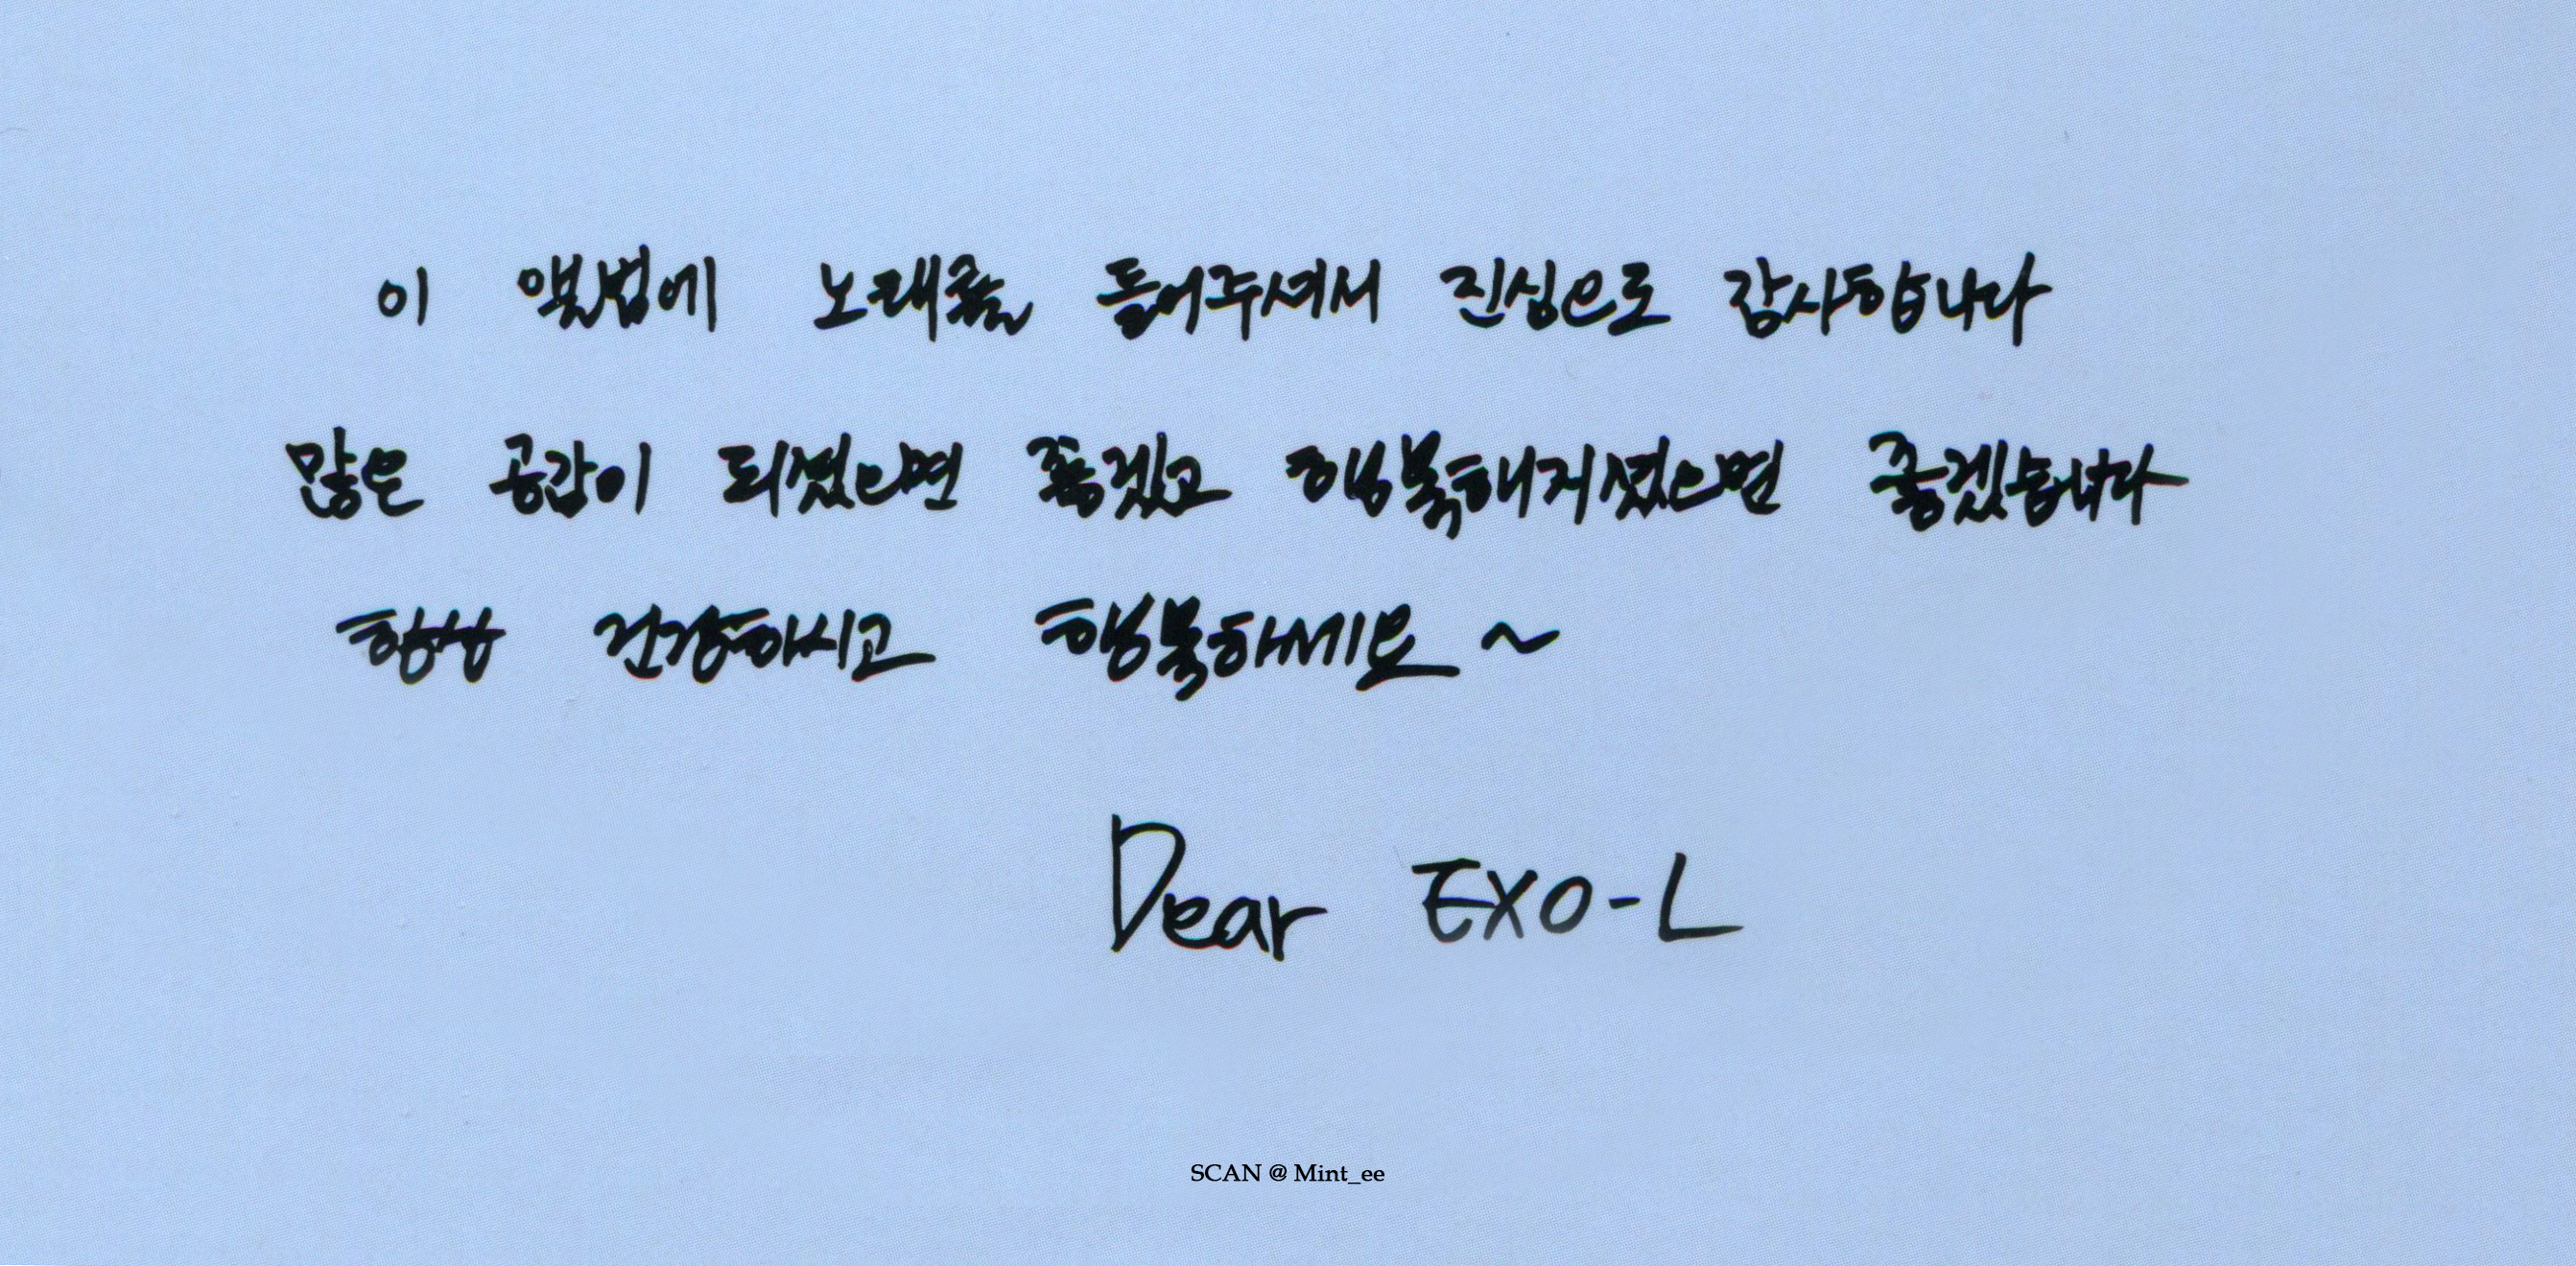 이 앨범에 노래를 들어주셔서 진심으로 감사합니다
많은 공감이 되셨으면 좋겠고 행복해지셨으면 좋겠습니다
항상 건강하시고 행복하세요~
Dear EXO-L
SCAN @ Mint_ee